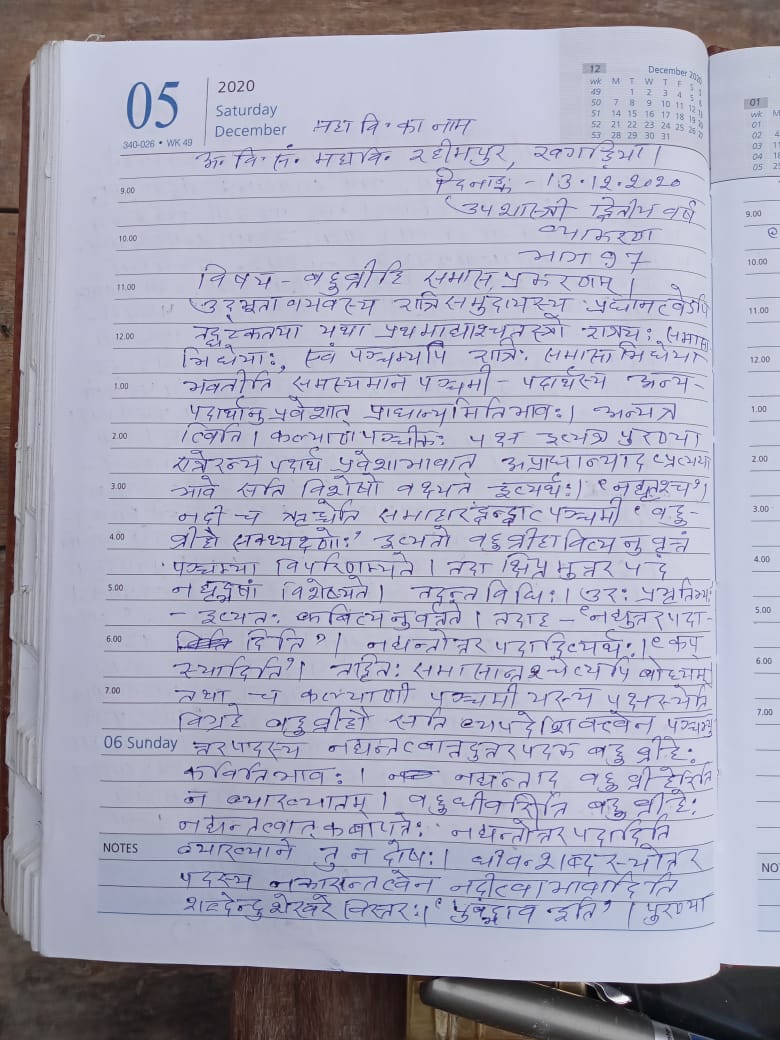 05
2020
Saturday
December
340-026 • WK 49
12 December 2020
wk M T W T F S
49 1 2 3 4 5
50 7 8 9 10 11 12
51 14 15 16 17 18 19
52 21 22 23 24 25 26
53 28 29 30 31
महा वि. का नाम
अ. वि. सं. महावि. रहीमपुर, खगड़िया।
दिनाङ्क - 13.12.2020
9.00
उपशास्त्री द्वितीय वर्ष
10.00
व्याकरण
भाग १७
11.00 विषय - बहुव्रीहि समास प्रकरणम्।
उद्भूतावयवस्य रात्रि समुदायस्य प्रधानत्वेऽपि
12.00 तद्घटकतया यथा प्रथमाद्याश्चतस्त्रो रात्रयः समासा
भिधेयाः, एवं पञ्चम्यपि रात्रिः समासाभिधेया
1.00 भवतीति समस्यमान पञ्चमी - पदार्थस्य अन्य-
पदार्थानुप्रवेशात् प्राधान्यमितिभावः। अन्यत्र
2.00 त्विति। कल्याणपञ्चमीकः पक्ष इत्यत्र पुरण्या
रात्रेरन्य पदार्थ प्रवेशाभावात् अप्राधान्याद प्रत्यया
3.00 भावे सति विशेषो वक्ष्यते इत्यर्थः। 'नद्यृतश्च'।
नदी च ऋच्चेति समाहारद्वन्द्वात्पञ्चमी 'बहु-
4.00 व्रीहौ सक्थ्यक्ष्णोः' इत्यतो बहुव्रीहावित्यनुवृत्तं
पञ्चम्या विपरिणम्यते। तदा क्षिप्तमुत्तर पदं
5.00 नद्यृद्भ्यां विशेष्यते। तदन्त विधिः। उरः प्रभृतिभ्यः
- इत्यतः कबित्यनुवर्तते। तदाह - 'नद्युत्तरपदा-
6.00 दिति'। नद्यन्तोत्तर पदादित्यर्थः। 'कप्
स्यादिति'। तद्धितः समासान्तश्चेत्यपि बोध्यम्
7.00 तथा च कल्याणी पञ्चमी यस्य पक्षस्येति
विग्रहे बहुव्रीहौ सति व्यपदेशिवत्त्वेन पञ्चम्यु
06 Sunday त्तरपादस्य नद्यन्तत्वात्तदुत्तरपदक बहुव्रीहेः
कबितिभावः। नद्यन्ताद् बहुव्रीहेरिति
न व्याख्यातम्। बहुधीवरीति बहुव्रीहेः
नद्यन्तत्वात् कबापत्तेः नद्यन्तोत्तर पदादिति
NOTES व्याख्याने तु न दोषः। धीवन्शब्दस्योत्तर
पदस्य नकारान्तत्वेन नदीत्वाभावादिति
शब्देन्दुशेखरे विस्तरः। 'पुंवद्भाव इति'। पुरण्या
01
wk M
01
02 4
03 11
04 18
05 25
9.00
10.00
11.00
12.00
1.00
2.00
3.00
4.00
5.00
6.00
7.00
NO